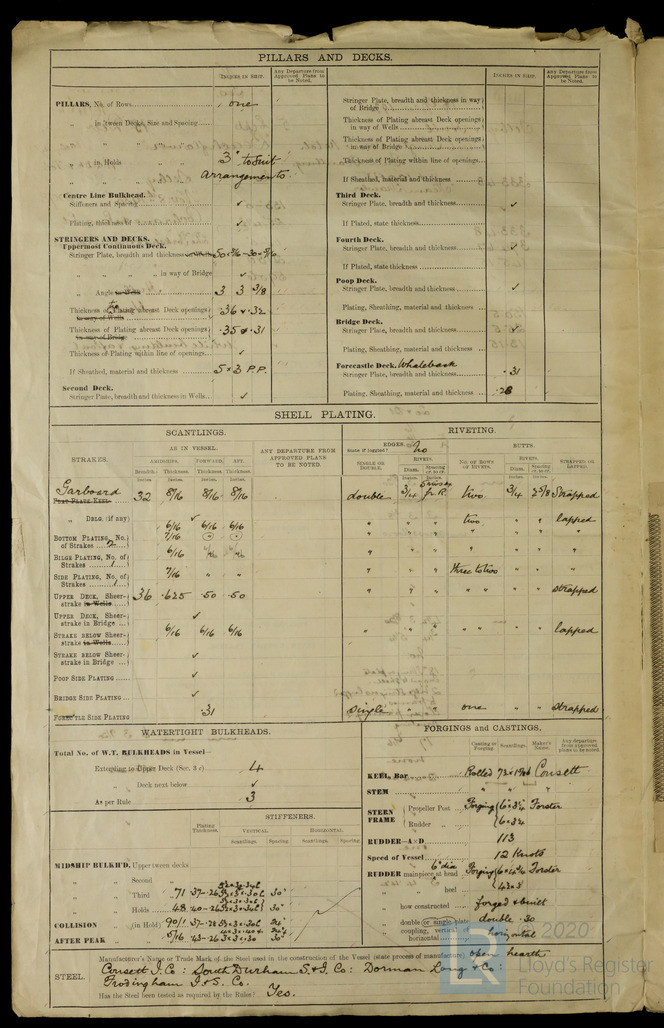 PILLARS AND DECKS.
INCHES IN SHIP.
Any Departure from Approved Plans to be Noted.
INCHES IN SHIP.
Any Departure from Approved Plans to be Noted.
PILLARS, No. of Rows
one
„ in Tween Decks, Size and Spacing
„ in Holds „ „
3" to suit
„ „ „
arrangements
Centre Line Bulkhead.
Stiffeners and Spacing ✓
Plating, thickness of ✓
STRINGERS AND DECKS.
Uppermost Continuous Deck.
Stringer Plate, breadth and thickness
„ „ „ in way of Bridge ✓
„ Angle 3 3 3/8
Thickness of Plating abreast Deck openings in way of Wells .36 & .32
Thickness of Plating abreast Deck openings in way of Bridge .35 & .31
Thickness of Plating within line of openings ✓
If Sheathed, material and thickness 5 × 3 P.P.
Second Deck.
Stringer Plate, breadth and thickness in Wells ✓
Stringer Plate, breadth and thickness in way of Bridge
Thickness of Plating abreast Deck openings in way of Wells
Thickness of Plating abreast Deck openings in way of Bridge
Thickness of Plating within line of openings
If Sheathed, material and thickness
Third Deck.
Stringer Plate, breadth and thickness ✓
If Plated, state thickness
Fourth Deck.
Stringer Plate, breadth and thickness ✓
If Plated, state thickness
Poop Deck.
Stringer Plate, breadth and thickness ✓
Plating, Sheathing, material and thickness
Bridge Deck.
Stringer Plate, breadth and thickness
Plating, Sheathing, material and thickness
Forecastle Deck. Whaleback
Stringer Plate, breadth and thickness .31
Plating, Sheathing, material and thickness .28
SHELL PLATING.
SCANTLINGS.
RIVETING.
STRAKES.
AS IN VESSEL.
ANY DEPARTURE FROM APPROVED PLANS TO BE NOTED.
EDGES.
State if joggled? no
BUTTS.
AMIDSHIPS. FORWARD. AFT.
Breadth. Thickness. Thickness. Thickness.
SINGLE OR DOUBLE.
RIVETS.
NO. OF ROWS OF RIVETS.
RIVETS.
STRAPPED OR LAPPED.
Garboard
FLAT PLATE KEEL 32 8/16 8/16 8/16 double 3/4 two 3/4 2 5/8 Strapped
„ DBLG. (if any) ✓
6/16 6/16 6/16 „ „ „ two „ „ lapped
BOTTOM PLATING, No. of Strakes 2 7/16
BILGE PLATING, No. of Strakes 1 6/16
SIDE PLATING, No. of Strakes 1 7/16 „ „ three to two
UPPER DECK, Sheerstrake in Wells 36 .625 .50 .50 „ „ „ „ „ strapped
UPPER DECK, Sheerstrake in Bridge ✓
STRAKE BELOW SHEERstrake in Wells 6/16 6/16 6/16 „ „ „ „ „ „ lapped
STRAKE BELOW SHEERstrake in Bridge ✓
POOP SIDE PLATING ✓
BRIDGE SIDE PLATING ✓
FORECTLE SIDE PLATING .31 single „ „ one „ „ Strapped
WATERTIGHT BULKHEADS.
Total No. of W.T. BULKHEADS in Vessel—
Extending to Upper Deck (Sec. 3 c) 4
„ Deck next below ✓
As per Rule 3
Plating Thickness.
STIFFENERS.
VERTICAL. HORIZONTAL.
Scantlings. Spacing. Scantlings. Spacing.
MIDSHIP BULKH'D, Upper tween decks
„ „ Second „
„ „ Third „ 30"
„ „ Holds 30"
COLLISION „ (in Hold)
AFTER PEAK „ „ 30"
FORGINGS and CASTINGS.
Casting or Forging. Scantlings. Maker's Name. Any departure from approved plans to be noted.
KEEL, Bar Rolled Consett
STEM „ „ „
STERN FRAME { Propeller Post Forging 6 × 3 1/4 Forster
Rudder „ 6 × 3 1/4
RUDDER—A×D 113
Speed of Vessel 12 Knots
RUDDER mainpiece at head 6" dia Forging Forster
„ „ heel
„ how constructed forged & built
„ double or single plate double .30
„ coupling, vertical or horizontal horizontal
Manufacturer's Name or Trade Mark of the Steel used in the construction of the Vessel (state process of manufacture) open hearth
STEEL. Consett I. Co: South Durham S. & I. Co: Dorman Long & Co:
Frodingham I. & S. Co.
Has the Steel been tested as required by the Rules? Yes.
© 2020
Lloyd's Register
Foundation